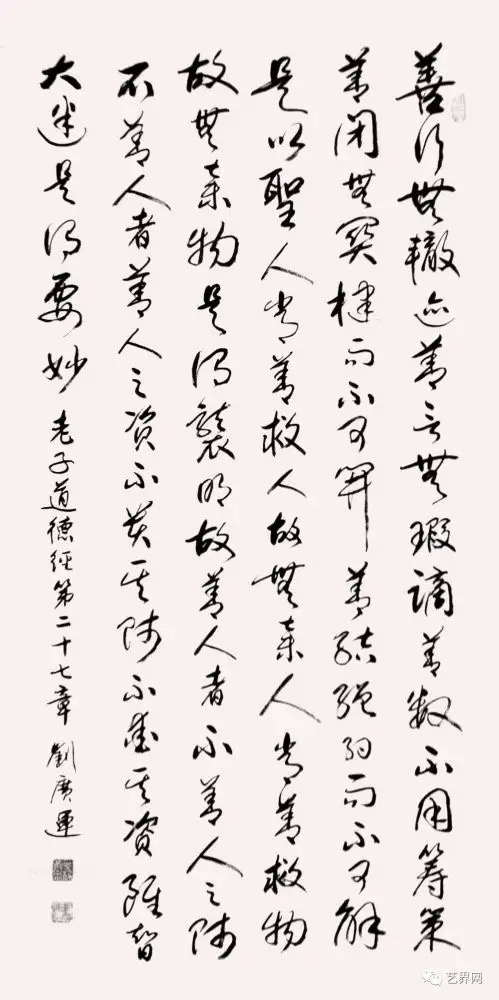 善行無轍迹善言無瑕謫善数不用筹策
善闭無関楗而不可開善结绳约而不可解
是以聖人常善救人故無棄人常善救物
故無棄物是谓襲明故善人者不善人之师
不善人者善人之资不貴其师不爱其资雖智
大迷是谓要妙
老子道德經第二十七章 劉廣運
艺界网